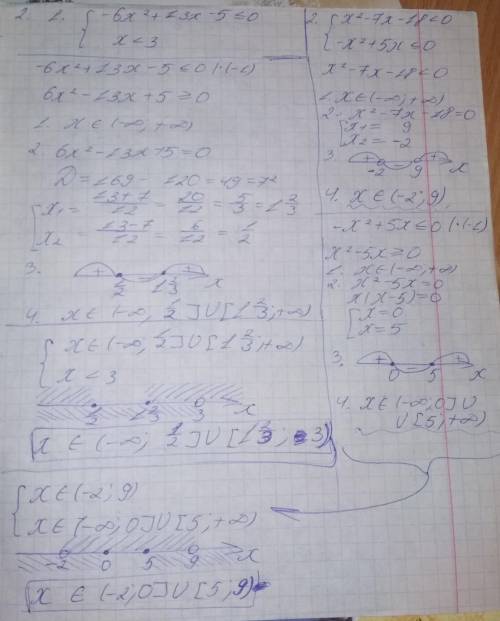 2. 1. { -6x²+13x-5≤0
x<3
-6x²+13x-5≤0 |·(-1)
6x²-13x+5≥0
1. x∈(-∞;+∞)
2. 6x²-13x+5=0
D=169-120=49=7²
[ x₁=(13+7)/12=20/12=5/3=1 2/3
x₂=(13-7)/12=6/12=1/2
3. + - + 1/2 1 2/3 x
4. x∈(-∞; 1/2]∪[1 2/3;+∞)
{ x∈(-∞; 1/2]∪[1 2/3;+∞)
x<3
1/2 1 2/3 3 x
x ∈ (-∞; 1/2]∪[1 2/3; 3)
2. { x²-7x-18<0
-x²+5x≤0
x²-7x-18<0
1. x∈(-∞;+∞)
2. x²-7x-18=0
[ x₁= 9
x₂=-2
3. + - + -2 9 x
4. x∈(-2; 9)
-x²+5x≤0 |·(-1)
x²-5x≥0
1. x∈(-∞;+∞)
2. x²-5x=0
x(x-5)=0
[ x=0
x=5
3. + - + 0 5 x
4. x∈(-∞;0]∪
∪[5;+∞)
{ x∈(-2; 9)
x∈(-∞;0]∪[5;+∞)
-2 0 5 9 x
x ∈ (-2;0]∪[5;9)